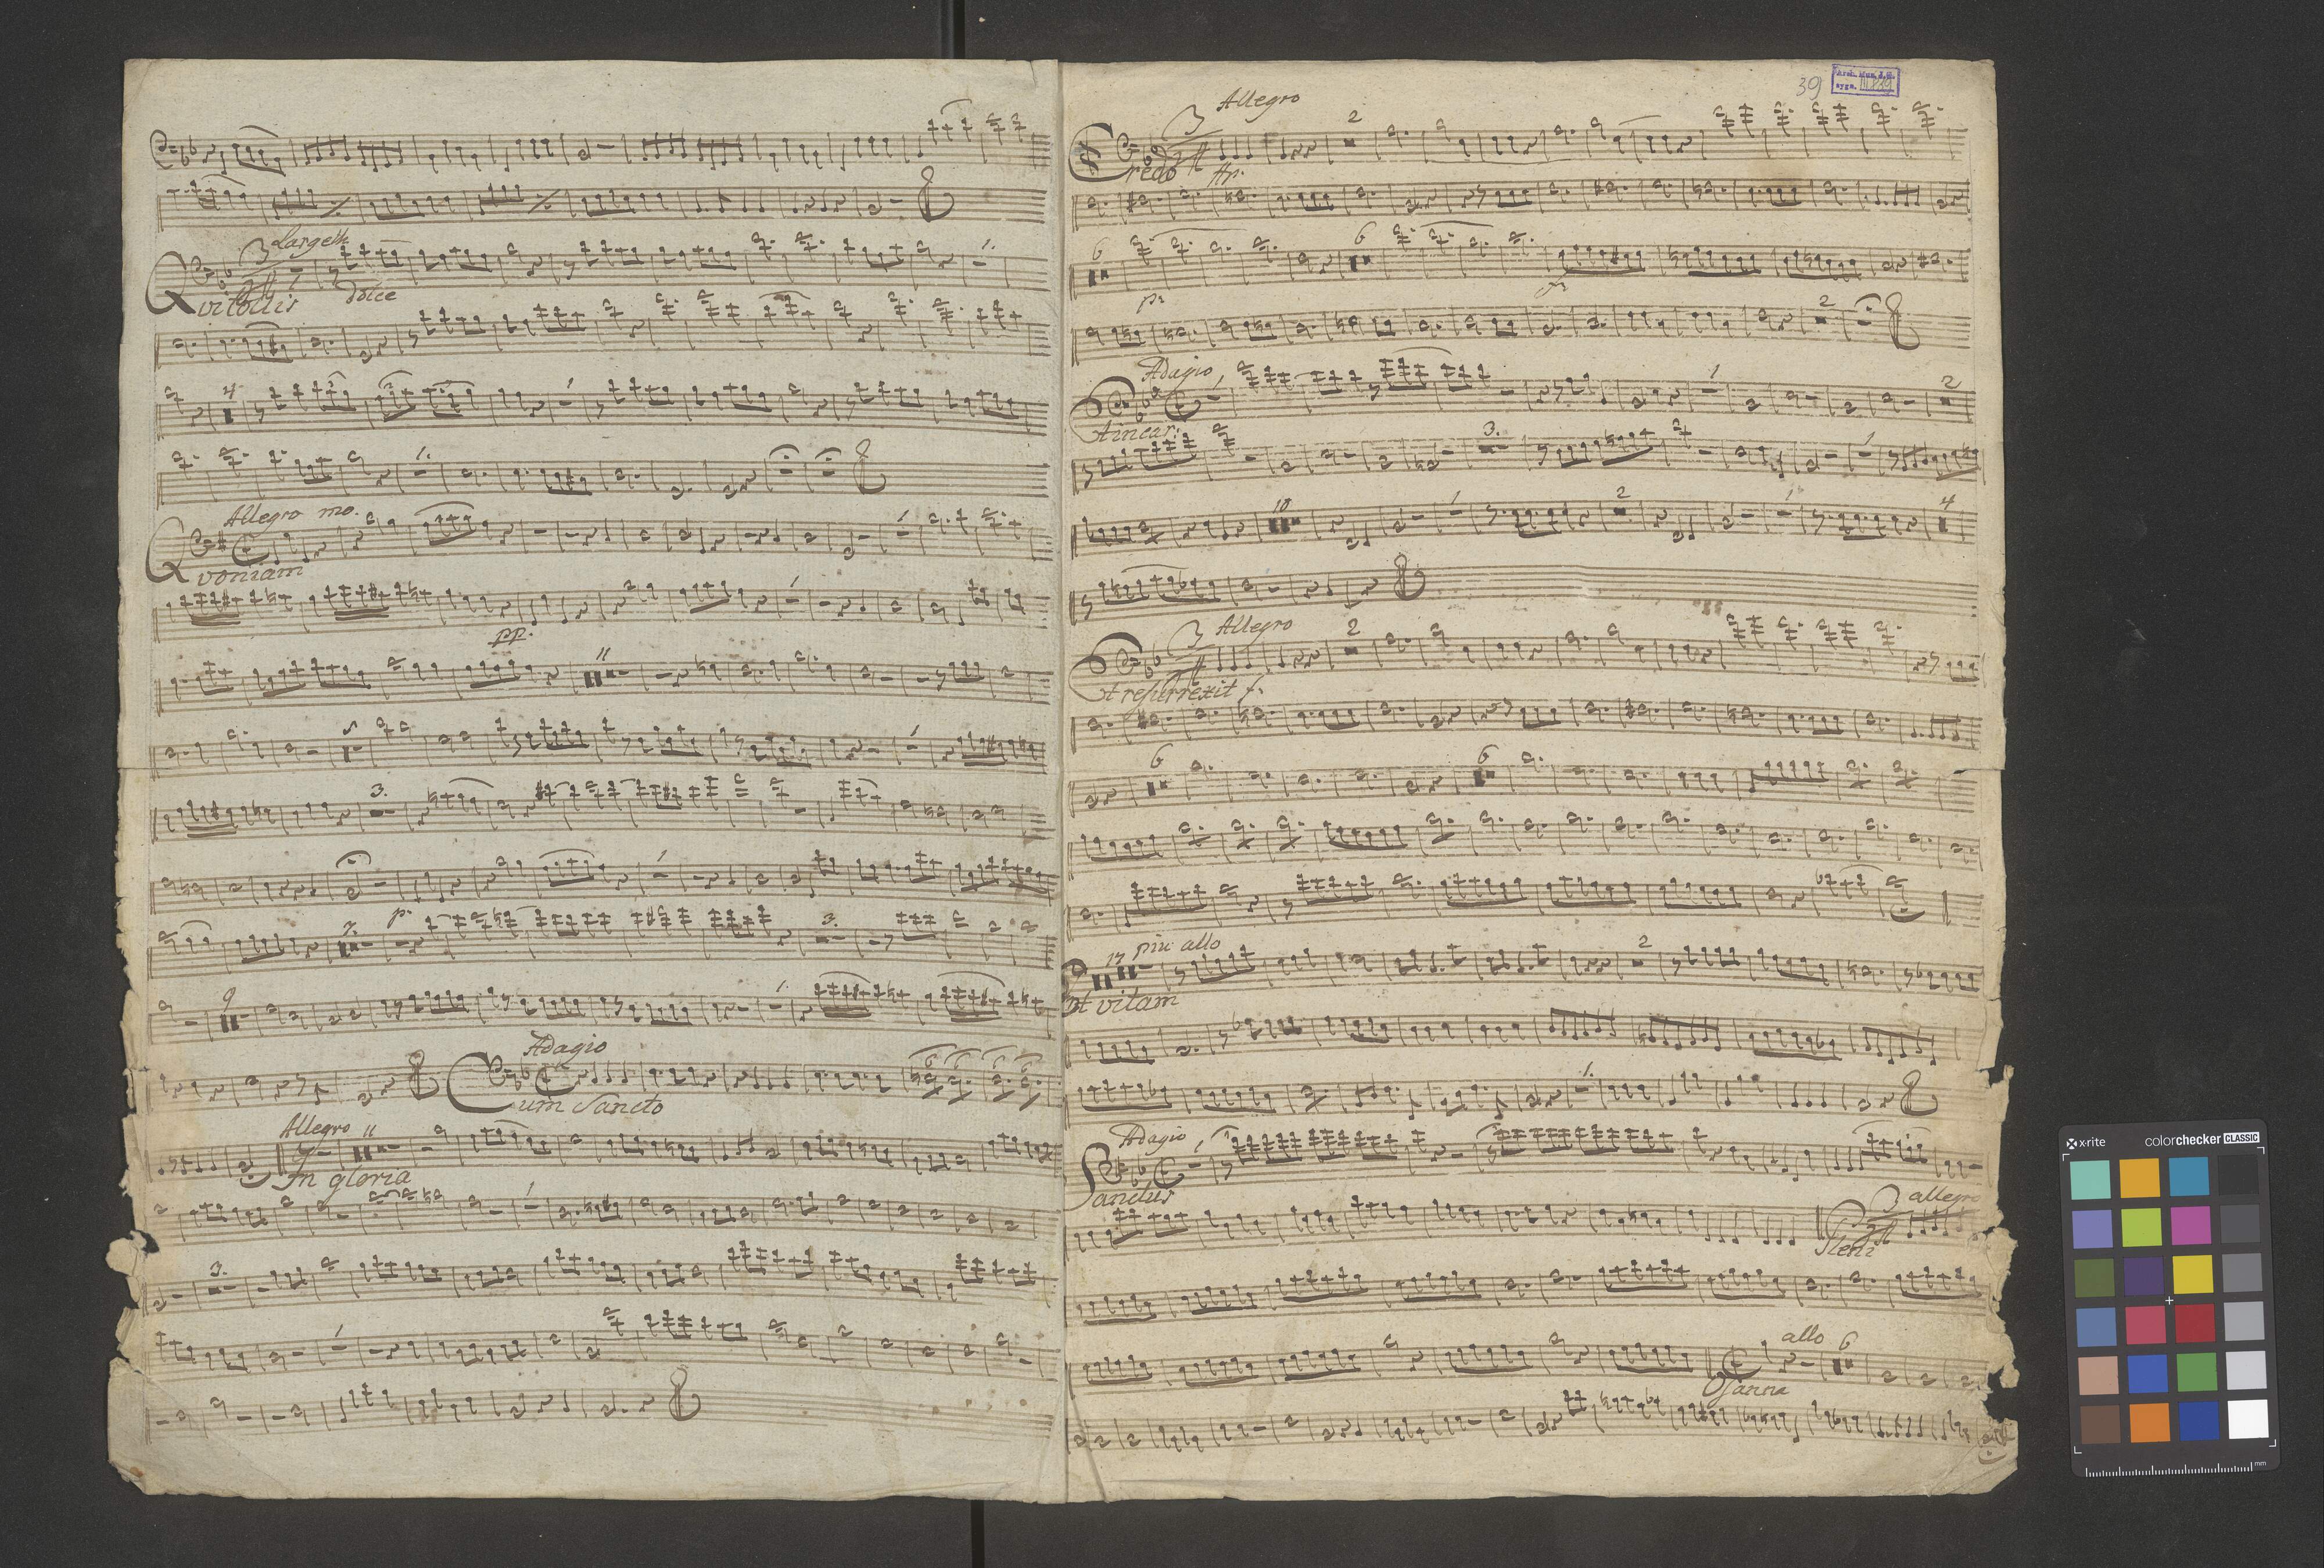 Largetto
Qui tollis dolce
4
1.
Allegro mo.
Quoniam
pp.
11
3.
p.
7.
3.
9
1.
Adagio
Cum Sancto
Allegro 11
In gloria
3.
39
Arch. Mus. J. G.
sygn. III
Allegro
2
Credo
6 6
p:
2
Adagio
1 2
Et incar:
3.
10 2 4
Allegro
2
Et resurrexit f.
6 6
17 più allo
2
Et vitam
1.
Adagio
Sanctus
3 allegro
Pleni
allo 6
Osanna
x-rite colorchecker CLASSIC
mm